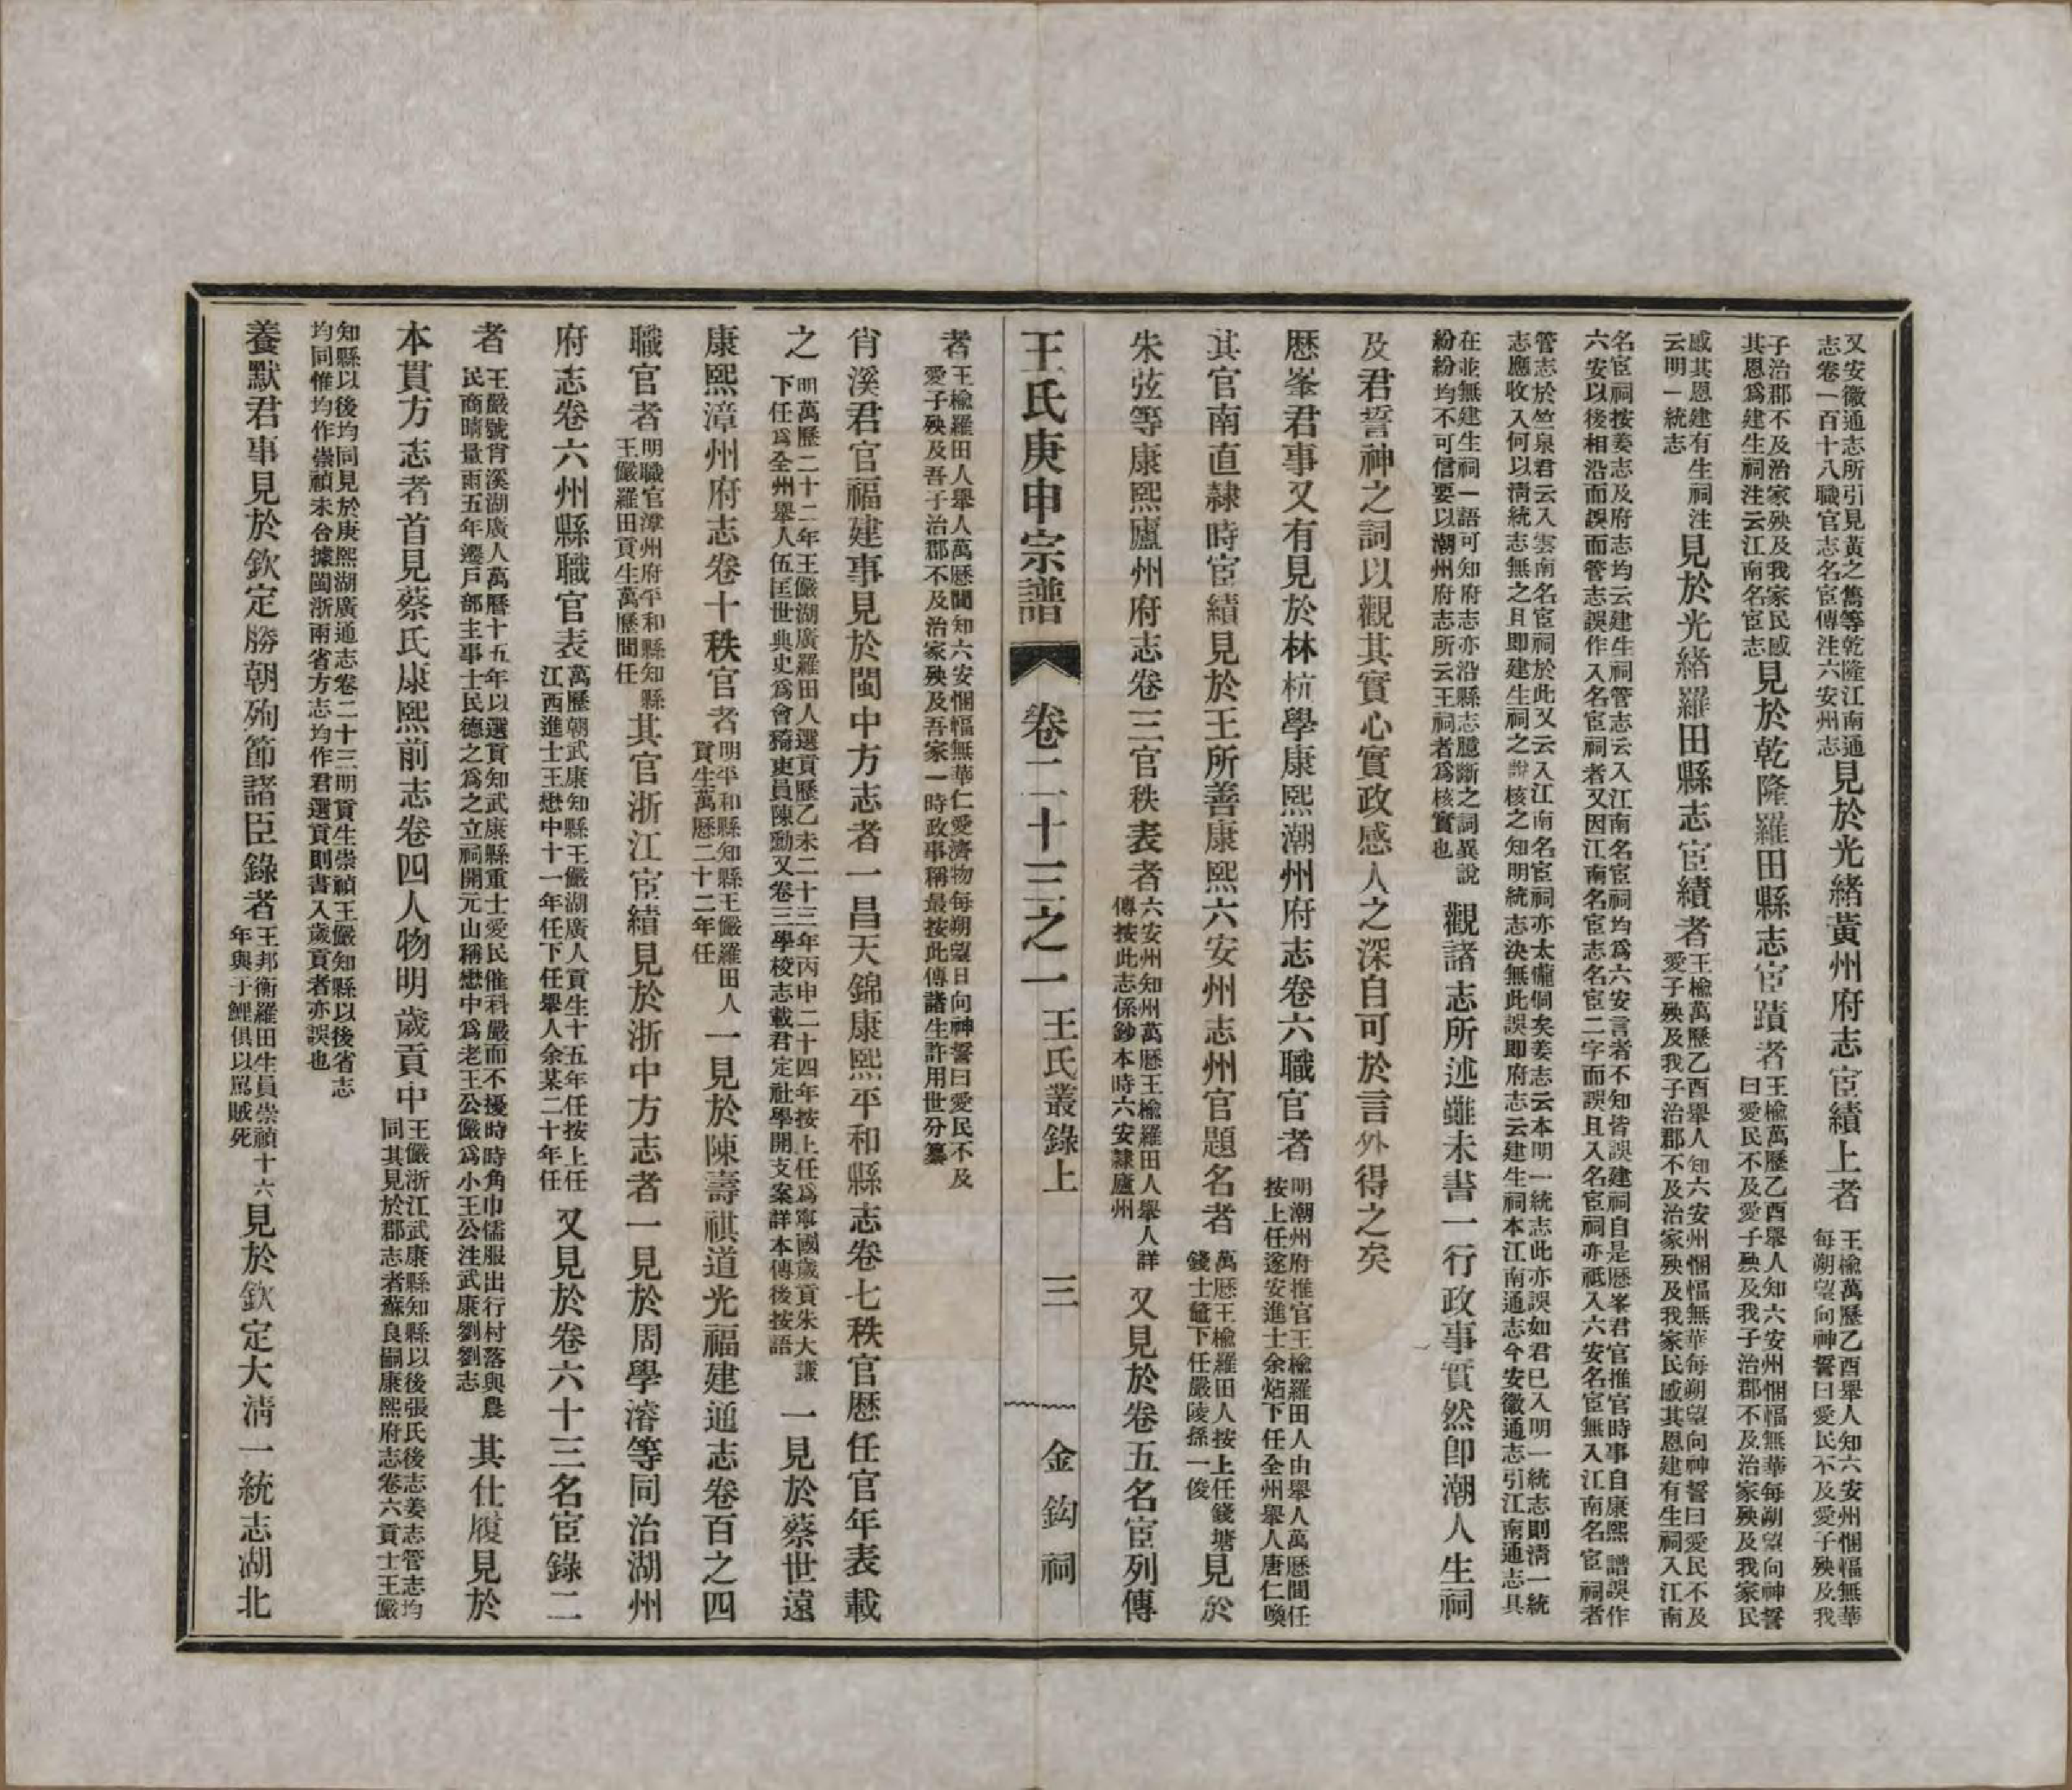 又安徽通志所引見黃之雋等乾隆江南通
志卷一百十八職官志名宦傳注六安州志
見於光緒黃州府志宦績上者
王楡萬歷乙酉舉人知六安州悃愊無華
每朔望向神誓曰愛民不及愛子殃及我
子治郡不及治家殃及我家民感
其恩爲建生祠注云江南名宦志
見於乾隆羅田縣志宦蹟者
王楡萬歷乙酉舉人知六安州悃愊無華每朔望向神誓
曰愛民不及愛子殃及我子治郡不及治家殃及我家民
感其恩建有生祠注
云明一統志
見於光緒羅田縣志宦績者
王楡萬歷乙酉舉人知六安州悃愊無華每朔望向神誓曰愛民不及
愛子殃及我子治郡不及治家殃及我家民感其恩建有生祠入江南
名宦祠按姜志及府志均云建生祠管志云入江南名宦祠均爲六安言者不知皆誤建祠自是歷峯君官推官時事自康熙譜誤作
六安以後相沿而誤而管志誤作入名宦祠者又因江南名宦志名宦二字而誤且入名宦祠亦祗入六安名宦無入江南名宦祠者
管志於竺泉君云入雲南名宦祠於此又云入江南名宦祠亦太儱侗矣姜志云本明一統志此亦誤如君已入明一統志則淸一統
志應收入何以淸統志無之且即建生祠之說核之知明統志決無此誤即府志云建生祠本江南通志今安徽通志引江南通志具
在並無建生祠一語可知府志亦沿縣志臆斷之詞異說
紛紛均不可信要以潮州府志所云王祠者爲核實也
觀諸志所述雖未書一行政事實然卽潮人生祠
及君誓神之詞以觀其實心實政感人之深自可於言外得之矣
歷峯君事又有見於林杭學康熙潮州府志卷六職官者
明潮州府推官王楡羅田人由舉人萬歷間任
按上任遂安進士余炶下任全州舉人唐仁喚
其官南直隸時宦績見於王所善康熙六安州志州官題名者
萬歷王楡羅田人按上任錢塘
錢士鼇下任嚴陵孫一俊
見於
朱弦等康熙廬州府志卷三官秩表者
六安州知州萬歷王楡羅田人舉人詳
傳按此志係鈔本時六安隸廬州
又見於卷五名宦列傳
王氏庚申宗譜
卷二十三之一 王氏叢錄上
三
金鈎祠
者
王楡羅田人舉人萬歷間知六安悃愊無華仁愛濟物每朔望日向神誓曰愛民不及
愛子殃及吾子治郡不及治家殃及吾家一時政事稱最按此傳諸生許用世分纂
肖溪君官福建事見於閩中方志者一昌天錦康熙平和縣志卷七秩官歷任官年表載
之
明萬歷二十二年王儼湖廣羅田人選貢歷乙未二十三年丙申二十四年按上任爲寧國歲貢朱大謙
下任爲全州舉人伍匡世典史爲會稽吏員陳勳又卷三學校志載君定社學開支案詳本傳後按語
一見於蔡世遠
康熙漳州府志卷十秩官者
明平和縣知縣王儼羅田人
貢生萬歷二十二年任
一見於陳壽祺道光福建通志卷百之四
職官者
明職官漳州府平和縣知縣
王儼羅田貢生萬歷間任
其官浙江宦績見於浙中方志者一見於周學濬等同治湖州
府志卷六州縣職官表
萬歷朝武康知縣王儼湖廣人貢生十五年任按上任
江西進士王懋中十一年任下任舉人余某二十年任
又見於卷六十三名宦錄二
者
王嚴號肖溪湖廣人萬曆十五年以選貢知武康縣重士愛民催科嚴而不擾時時角巾儒服出行村落與農
民商晴量雨五年遷戶部主事士民德之爲之立祠開元山稱懋中爲老王公儼爲小王公注武康劉劉志
其仕履見於
本貫方志者首見蔡氏康熙前志卷四人物明歲貢中
王儼浙江武康縣知縣以後張氏後志姜志管志均
同其見於郡志者蘇良嗣康熙府志卷六貢士王儼
知縣以後均同見於康熙湖廣通志卷二十三明貢生崇禎王儼知縣以後省志
均同惟均作崇禎未合據閩浙兩省方志均作君選貢則書入歲貢者亦誤也
養默君事見於欽定勝朝殉節諸臣錄者
王邦衡羅田生員崇禎十六
年與子鯉俱以罵賊死
見於欽定大淸一統志湖北